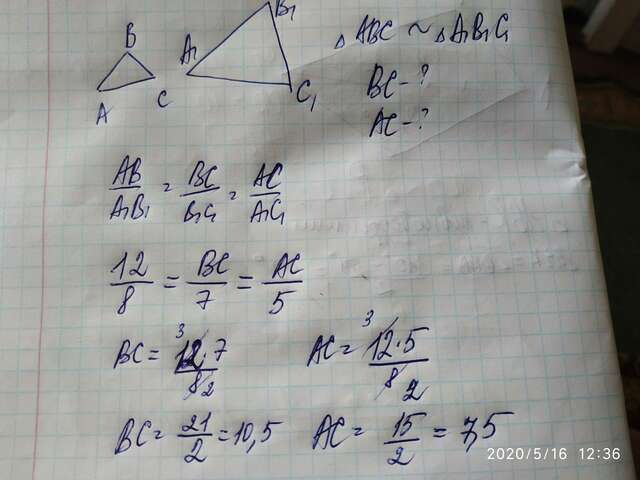 B
A C
A₁ B₁ C₁
△ ABC ~ △ A₁B₁C₁
BC - ?
AC - ?
AB/A₁B₁ = BC/B₁C₁ = AC/A₁C₁
12/8 = BC/7 = AC/5
BC = 12·7/8 3 2 AC = 12·5/8 3 2
BC = 21/2 = 10,5 AC = 15/2 = 7,5
2020/5/16 12:36